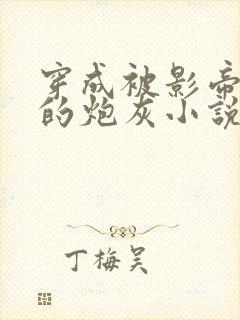 穿成被影帝
的炮灰小說
丁梅吴